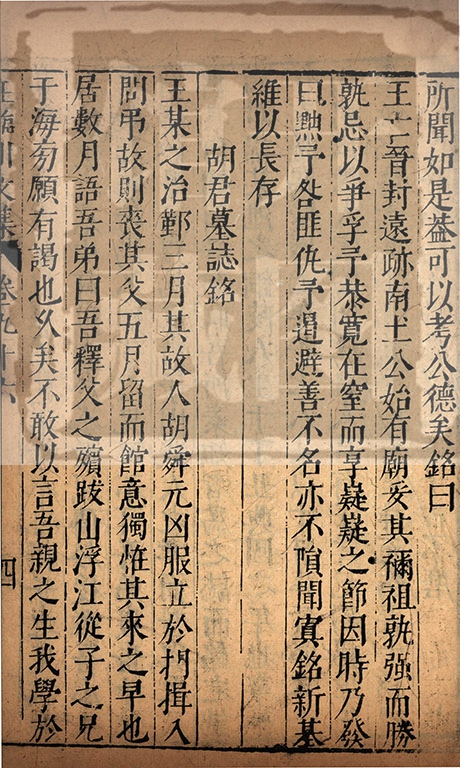 所聞如是葢可以考公德矣銘曰
王亡晉封遠跡南土公始有廟妥其禰祖孰强而勝
孰忌以爭孚予恭寛在窒而享嶷嶷之節因時乃發
曰黙予咎匪仇予遏避善不名亦不隕聞窴銘新墓
維以長存
胡君墓誌銘
王某之治鄞三月其故人胡舜元凶服立於門揖入
問弔故則喪其父五月留而館意獨恠其來之早也
居數月語吾弟曰吾釋父之殯跋山浮江從子之兄
于海㫄願有謁也久矣不敢以言吾親之生我學於
王臨川文集 卷九十六 四